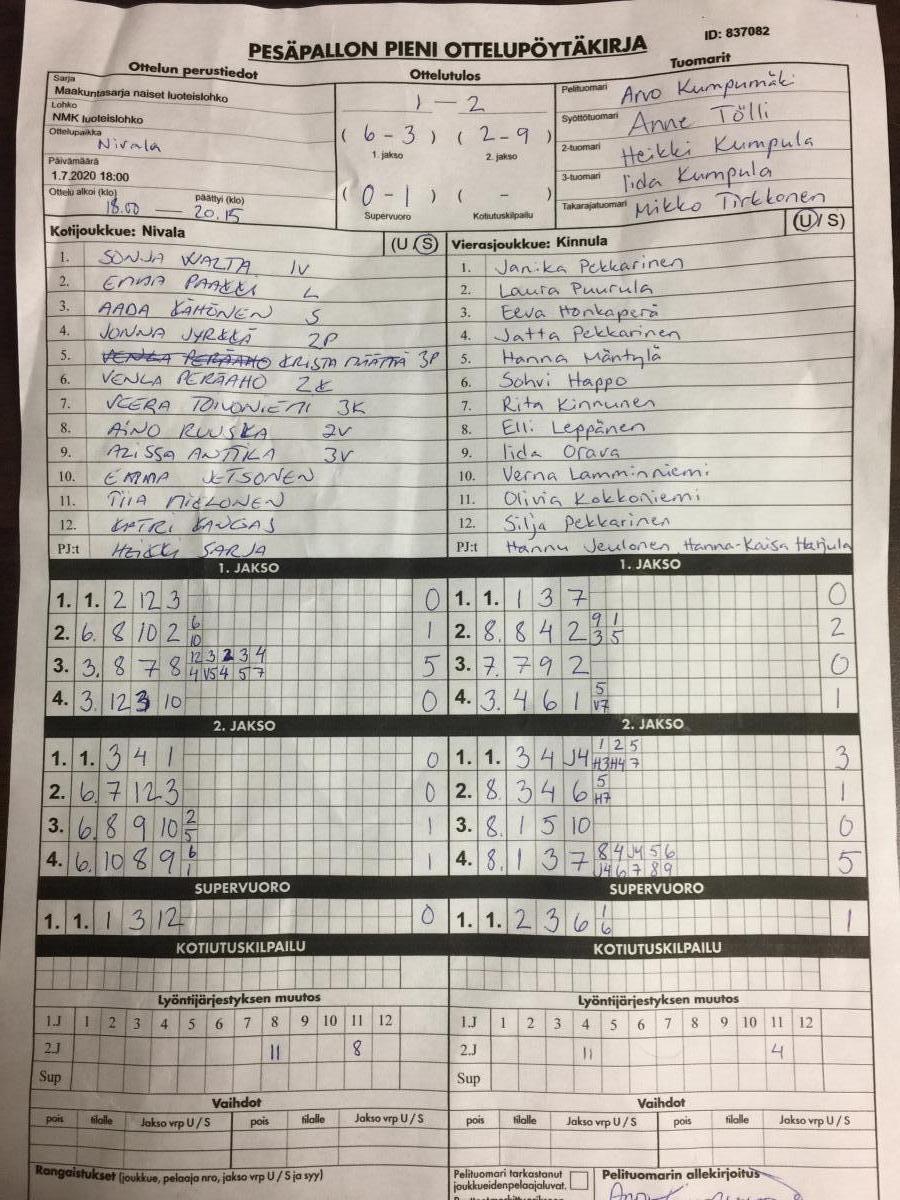 PESÄPALLON PIENI OTTELUPÖYTÄKIRJA
ID: 837082
Ottelun perustiedot
Sarja
Maakuntasarja naiset luoteislohko
Lohko
NMK luoteislohko
Ottelupaikka
Nivala
Päivämäärä
1.7.2020 18:00
Ottelu alkoi (klo) päättyi (klo)
18.00 — 20.15
Ottelutulos
1 — 2
( 6 - 3 ) ( 2 - 9 )
1. jakso 2. jakso
( 0 - 1 ) ( - )
Supervuoro Kotiutuskilpailu
Tuomarit
Pelituomari Arvo Kumpumäki
Syöttötuomari Anne Tölli
2-tuomari Heikki Kumpula
3-tuomari Iida Kumpula
Takarajatuomari Mikko Tirkkonen
Kotijoukkue: Nivala (U / S)
1. SONJA WALTA 1V
2. EMMA PAAKKI L
3. AADA KÄHÖNEN S
4. JONNA JYRKKÄ 2P
5. VENLA PERÄAHO KRISTA MÄÄTTÄ 3P
6. VENLA PERÄAHO 2K
7. VEERA TOIVONIEMI 3K
8. AINO RUUSKA 2V
9. ALISSA ANTTILA 3V
10. EMMA JETSONEN
11. TIIA MIELONEN
12. KATRI KANGAS
PJ:t HEIKKI SARJA
Vierasjoukkue: Kinnula (U / S)
1. Janika Pekkarinen
2. Laura Puurula
3. Eeva Honkaperä
4. Jatta Pekkarinen
5. Hanna Mäntylä
6. Sohvi Happo
7. Rita Kinnunen
8. Elli Leppänen
9. Iida Orava
10. Verna Lamminniemi
11. Olivia Kokkoniemi
12. Silja Pekkarinen
PJ:t Hannu Jeulonen Hanna-Kaisa Hatjula
1. JAKSO
1. 1. 2 12 3 0
2. 6. 8 10 2 6 1
10
3. 3. 8 7 8 12 3 2 3 4 5
4 V5 4 5 7
4. 3. 12 3 10 0
2. JAKSO
1. 1. 3 4 1 0
2. 6. 7 12 3 0
3. 6. 8 9 10 2 1
5
4. 6. 10 8 9 6 1
1
SUPERVUORO
1. 1. 1 3 12 0
KOTIUTUSKILPAILU
1. JAKSO
1. 1. 1 3 7 0
2. 8. 8 4 2 9 1 2
3 5
3. 7. 7 9 2 0
4. 3. 4 6 1 5 1
V7
2. JAKSO
1. 1. 3 4 J4 1 2 5 3
H3 H4 7
2. 8. 3 4 6 5 1
H7
3. 8. 1 5 10 0
4. 8. 1 3 7 8 4 J4 5 6 5
J4 6 7 8 9
SUPERVUORO
1. 1. 2 3 6 1 1
6
KOTIUTUSKILPAILU
Lyöntijärjestyksen muutos
1.J 1 2 3 4 5 6 7 8 9 10 11 12
2.J 11 8
Sup
Vaihdot
pois tilalle Jakso vrp U / S pois tilalle Jakso vrp U / S
Lyöntijärjestyksen muutos
1.J 1 2 3 4 5 6 7 8 9 10 11 12
2.J 11 4
Sup
Vaihdot
pois tilalle Jakso vrp U / S pois tilalle Jakso vrp U / S
Rangaistukset (joukkue, pelaaja nro, jakso vrp U / S ja syy)
Pelituomari tarkastanut
joukkueidenpelaajaluvat.
Pelituomarin allekirjoitus